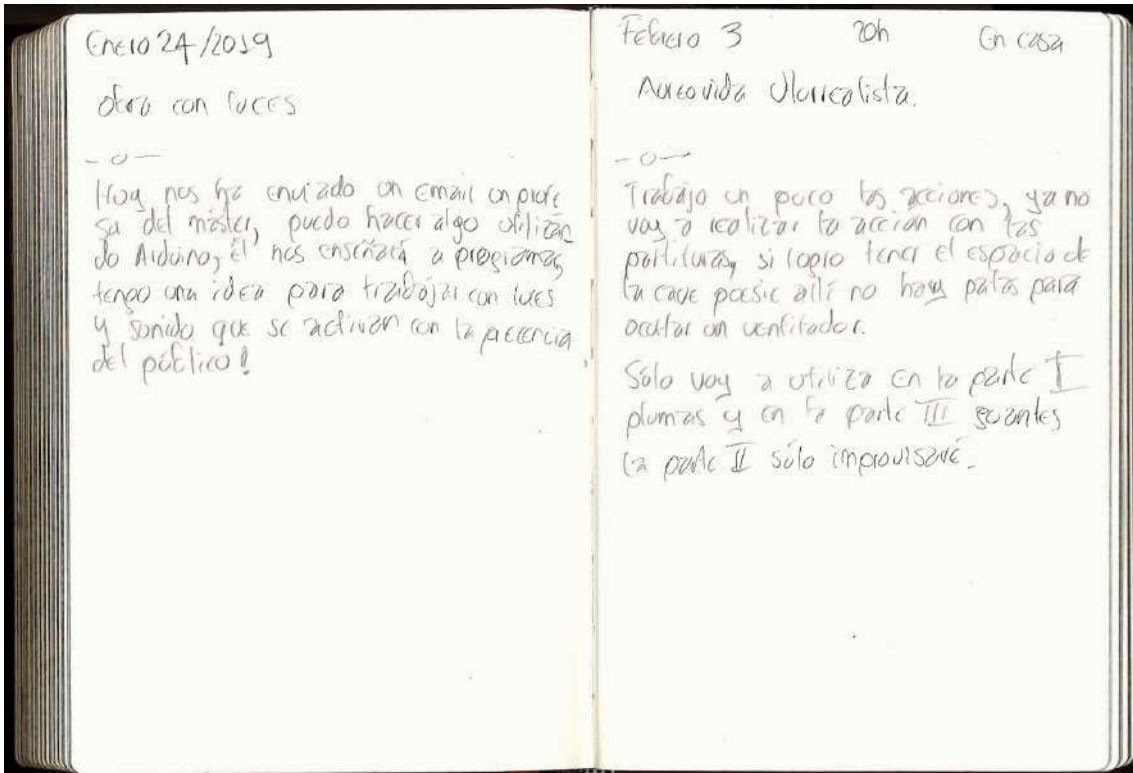 Enero 24/2019
obra con luces
—o—
Hoy nos ha enviado un email un profe
sa del máster, puedo hacer algo utilizan
do Arduino, él nos enseñará a programas
tengo una idea para trabajar con luces
y sonido que se activan con la presencia
del público!
Febrero 3 20h En casa
—o—
Trabajo un poco las acciones, ya no
voy a realizar la acción con las
partituras, si logro tener el espacio de
la cave poesie allí no hay patas para
ocultar un ventilador.
Sólo voy a utiliza en la parte I
plumas y en la parte III guantes
la parte II sólo improvisaré.